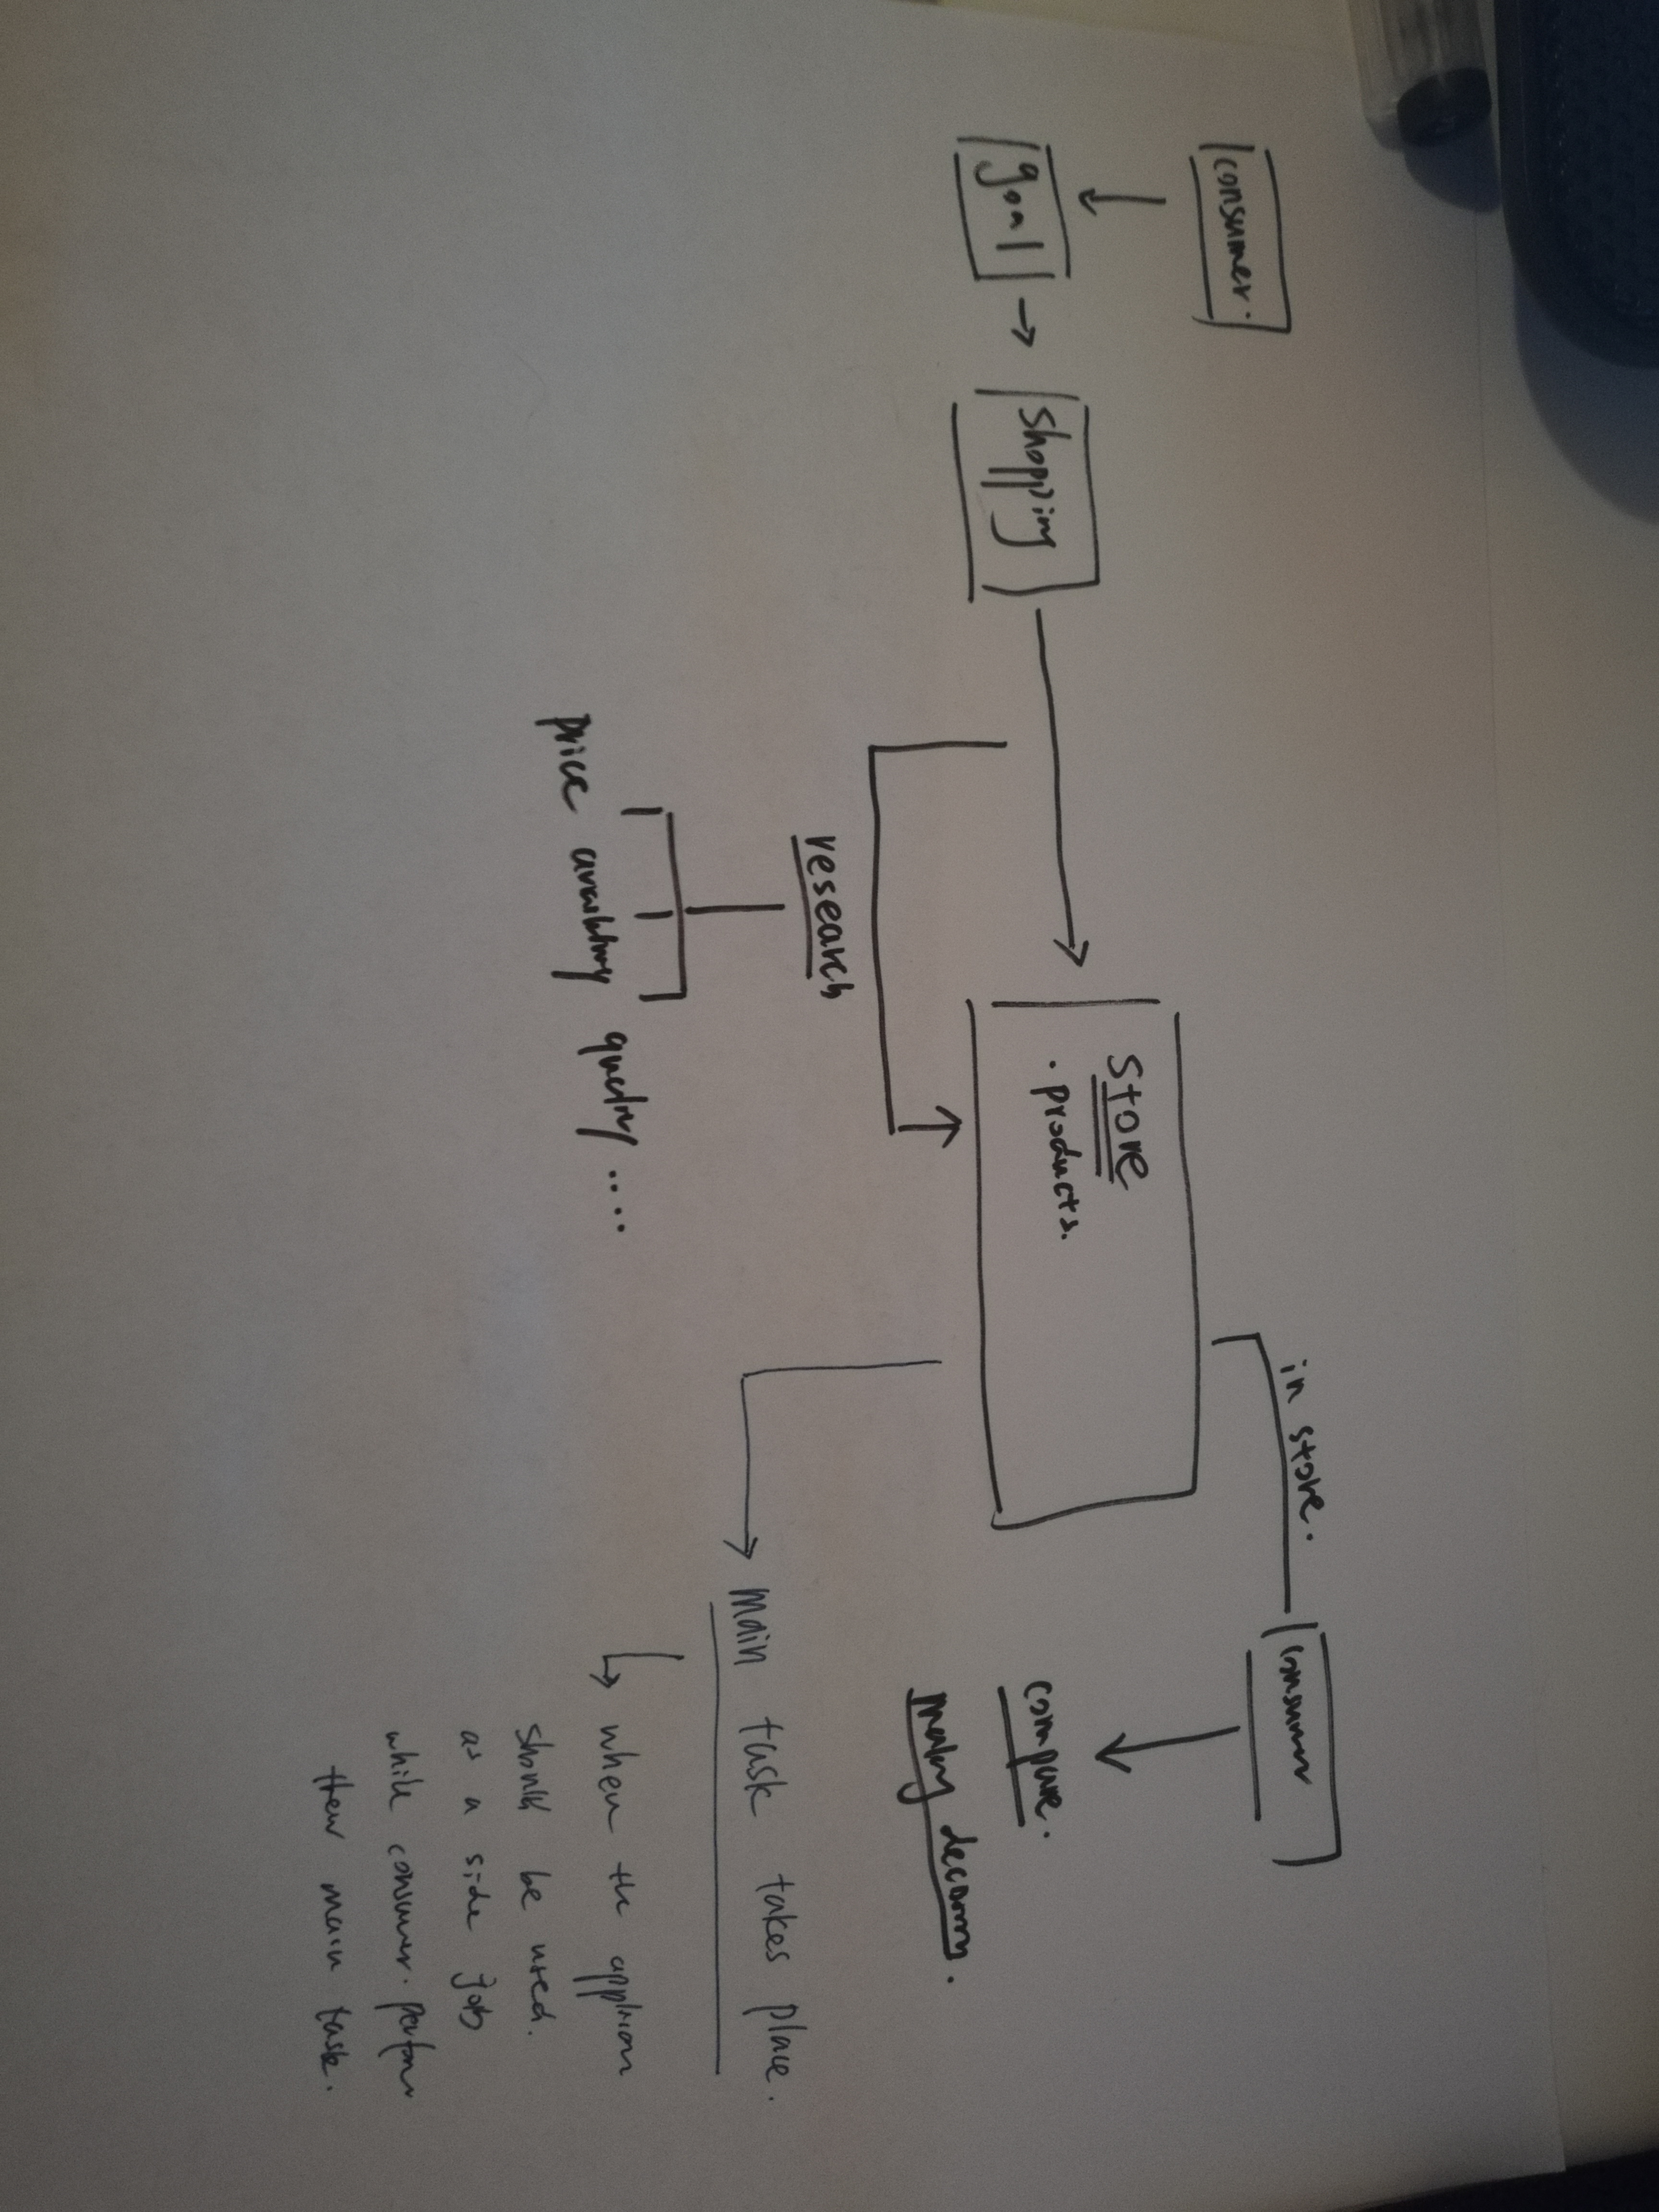 consumer.
goal
shopping
research
price availability quality ....
store
. products.
in store.
consumer
compare.
making
main task takes place.
when the
should be used.
as a side job
while consumer. perform
their main task.